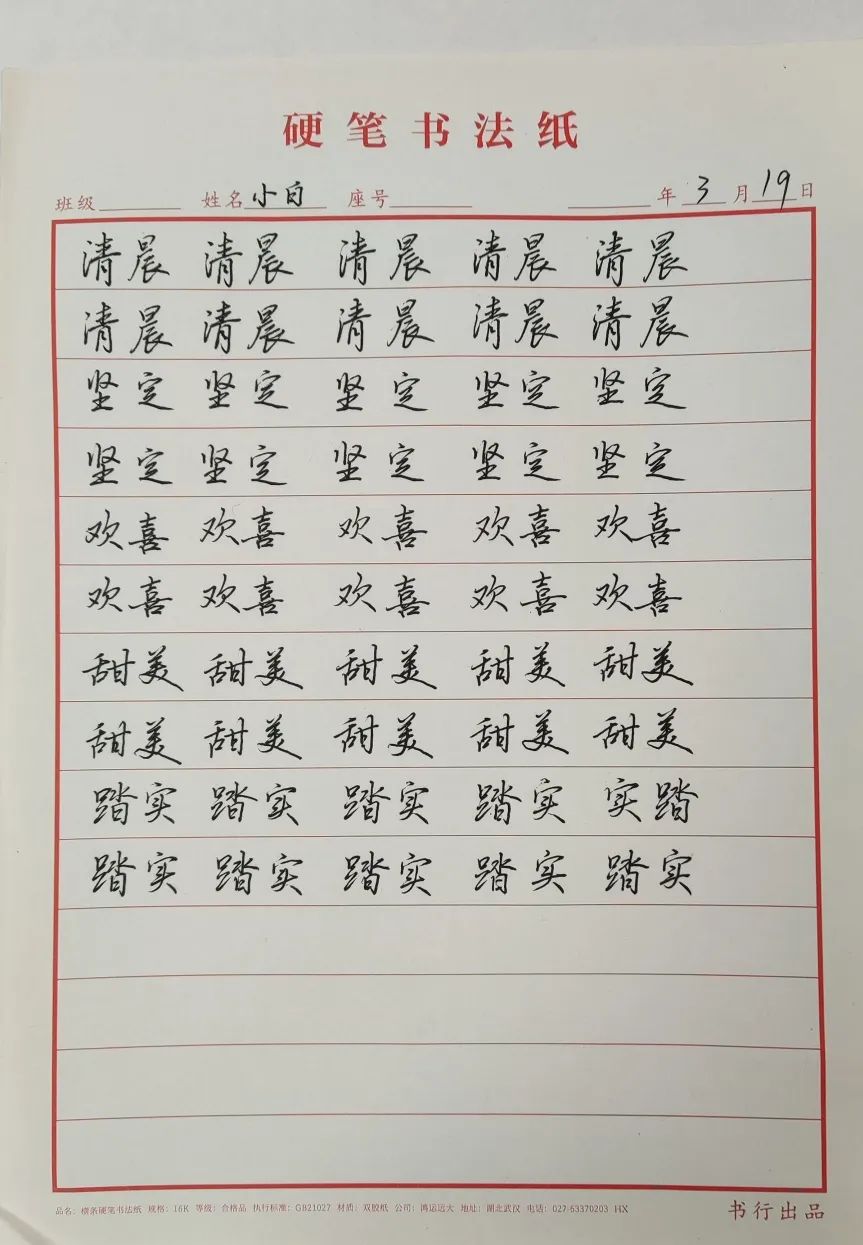 硬笔书法纸
班级 姓名 小白 座号 年 3 月 19 日
清晨 清晨 清晨 清晨 清晨
清晨 清晨 清晨 清晨 清晨
坚定 坚定 坚定 坚定 坚定
坚定 坚定 坚定 坚定 坚定
欢喜 欢喜 欢喜 欢喜 欢喜
欢喜 欢喜 欢喜 欢喜 欢喜
甜美 甜美 甜美 甜美 甜美
甜美 甜美 甜美 甜美 甜美
踏实 踏实 踏实 踏实 实踏
踏实 踏实 踏实 踏实 踏实
品名：横条硬笔书法纸 规格：16K 等级：合格品 执行标准：GB21027 材质：双胶纸 公司：鸿运远大 地址：湖北武汉 电话：027-63370203 HX
书行出品